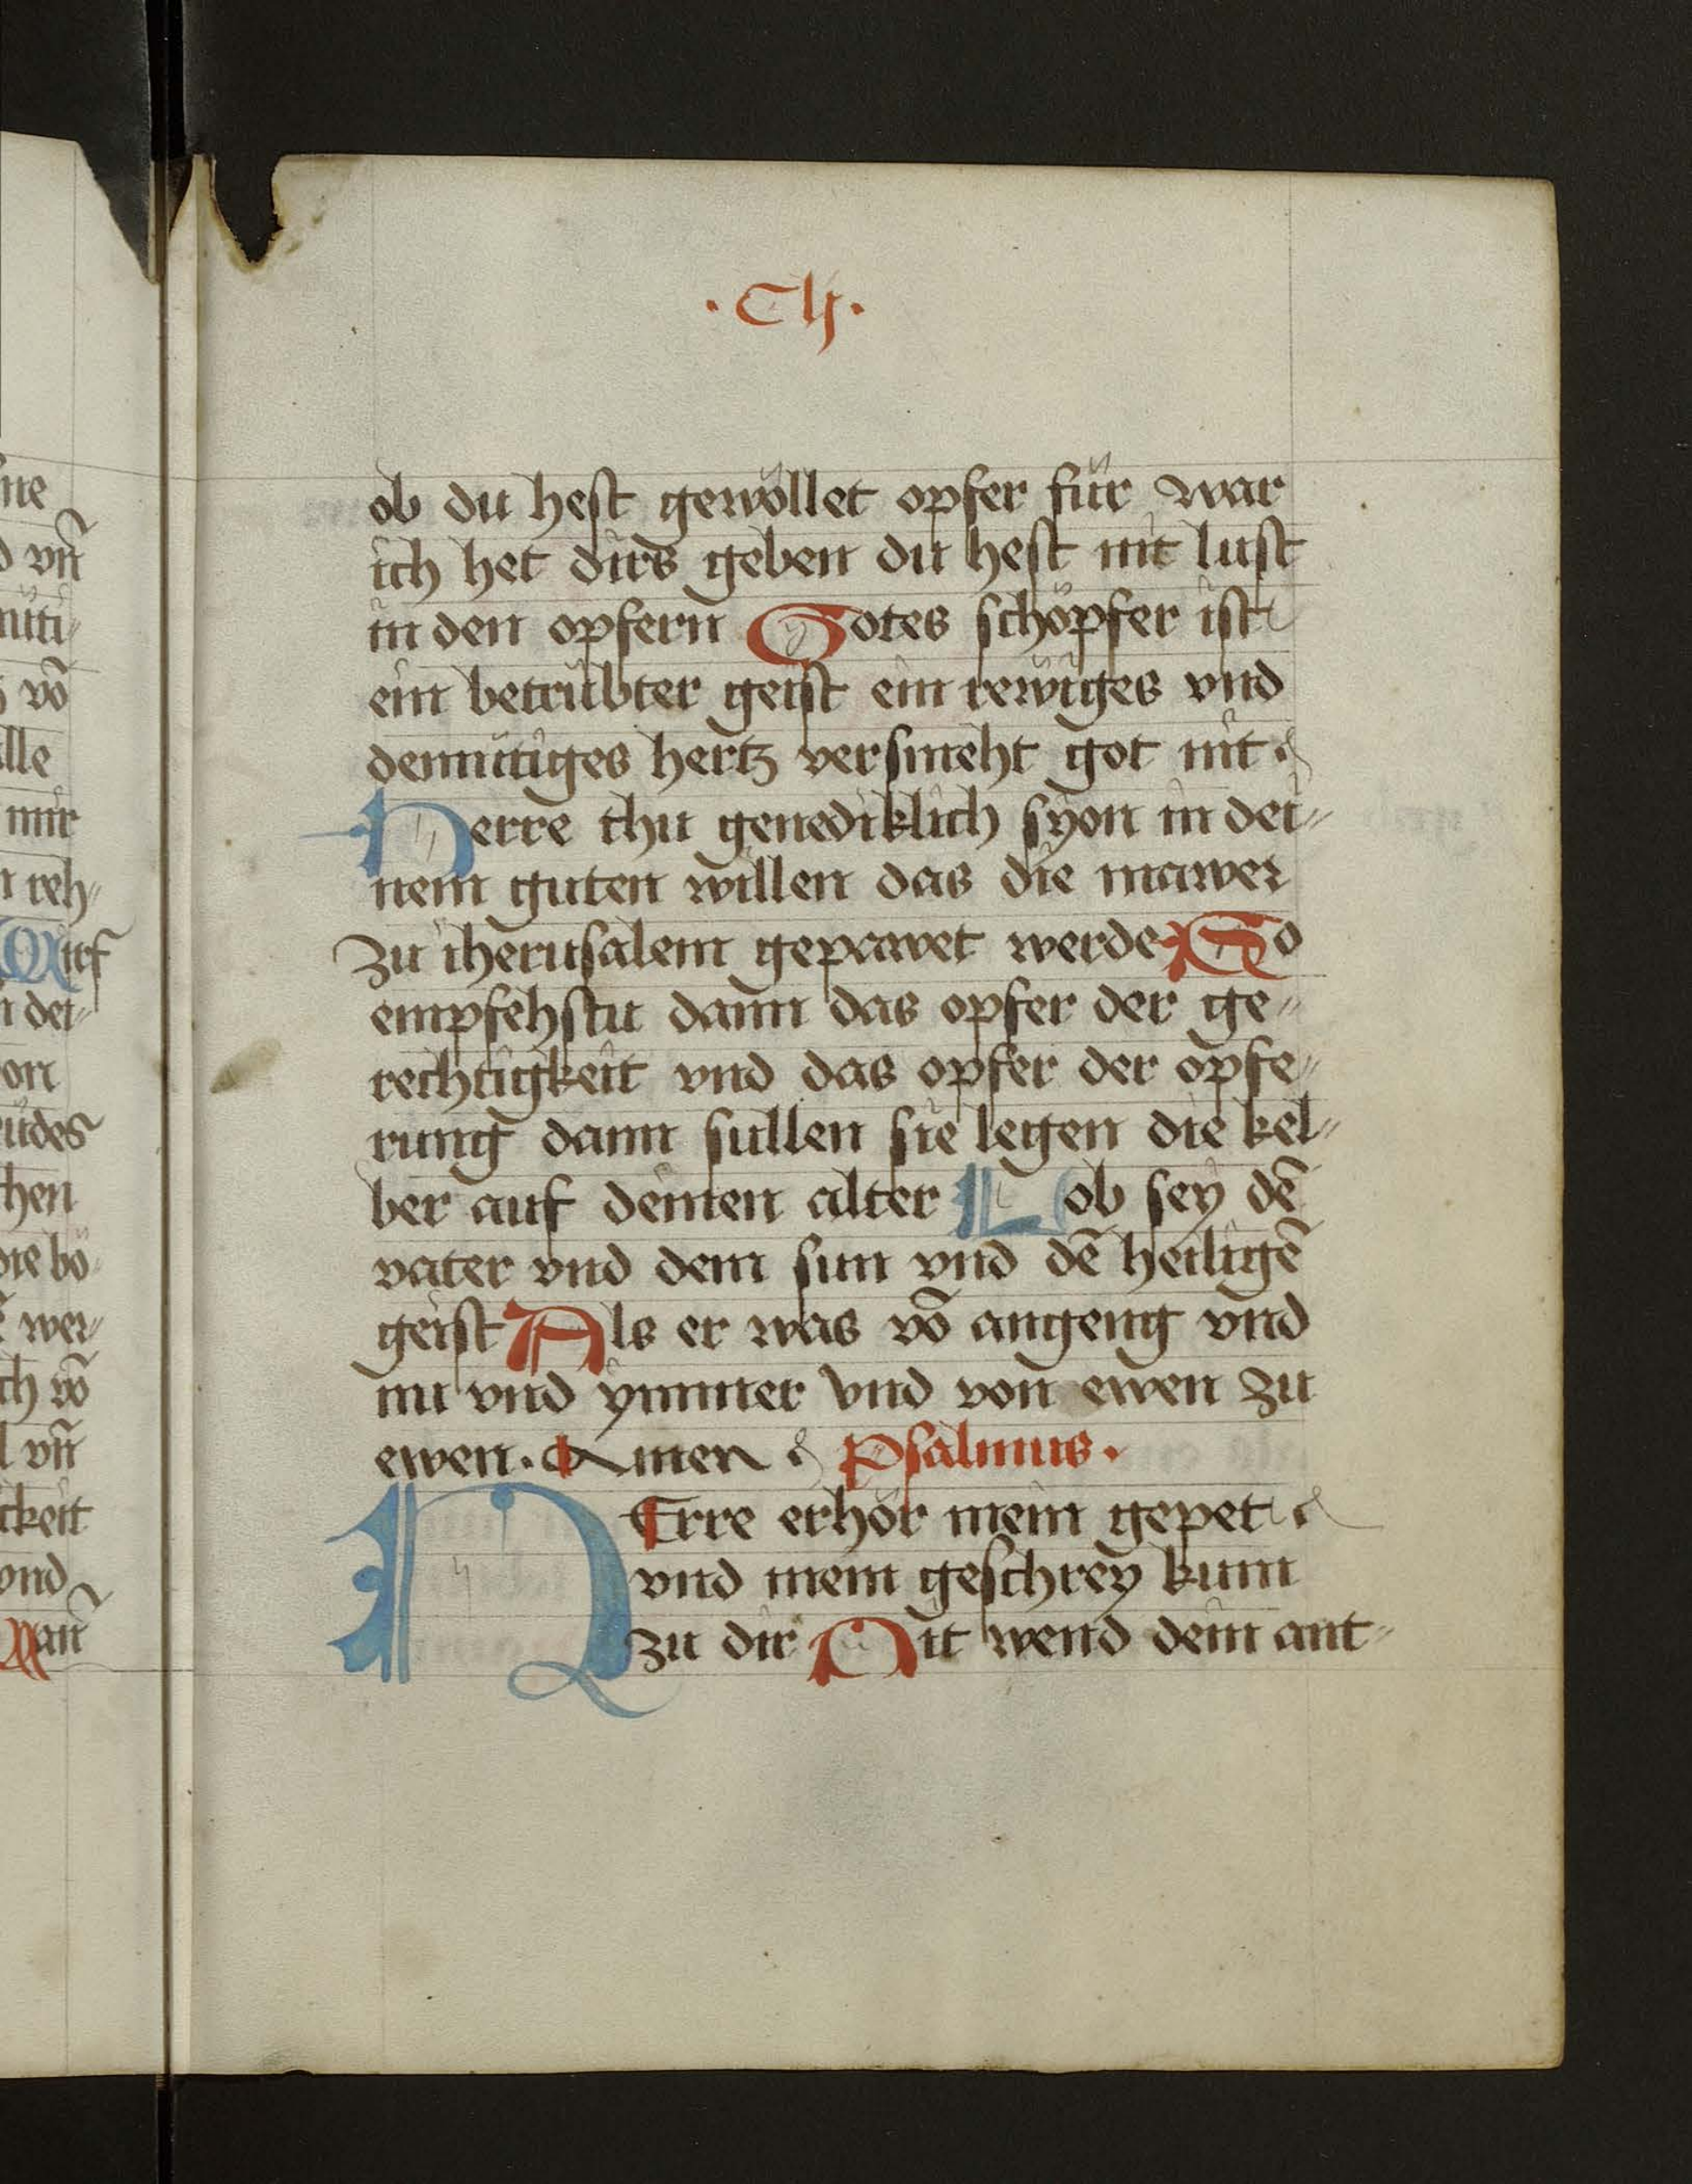 ·Clj·
ob du hest gewöllet opfer für war
ich het dirs geben du hest nit lust
in den opfern Gotes schöpfer ist
ein betrübter geist ein rewiges vnd
demütiges hertz versmeht got nit
Herre thu genediklich syon in dei„
nem guten willen das die mawer
zu iherusalem gepawet werde So
empfehstu dann das opfer der ge„
rechtigkeit vnd das opfer der opfe„
rung dann sullen sie legen die kel„
ber auf deinen alter Lob sey dē
vater vnd dem sun vnd dē heiligē
geist Als er was vō angeng vnd
nu vnd ymmer vnd von ewen zu
ewen. Amen Psalmus.
HErre erhör mein gepet
vnd mein geschrey kum
zu dir Nit wend dein ant„
ne
vn̄
müti„
vō
alle
mir
reh„
Auf
dei„
on
hen
die bö„
wer„
ch vō
vn̄
ckeit
vnd
Wan̄